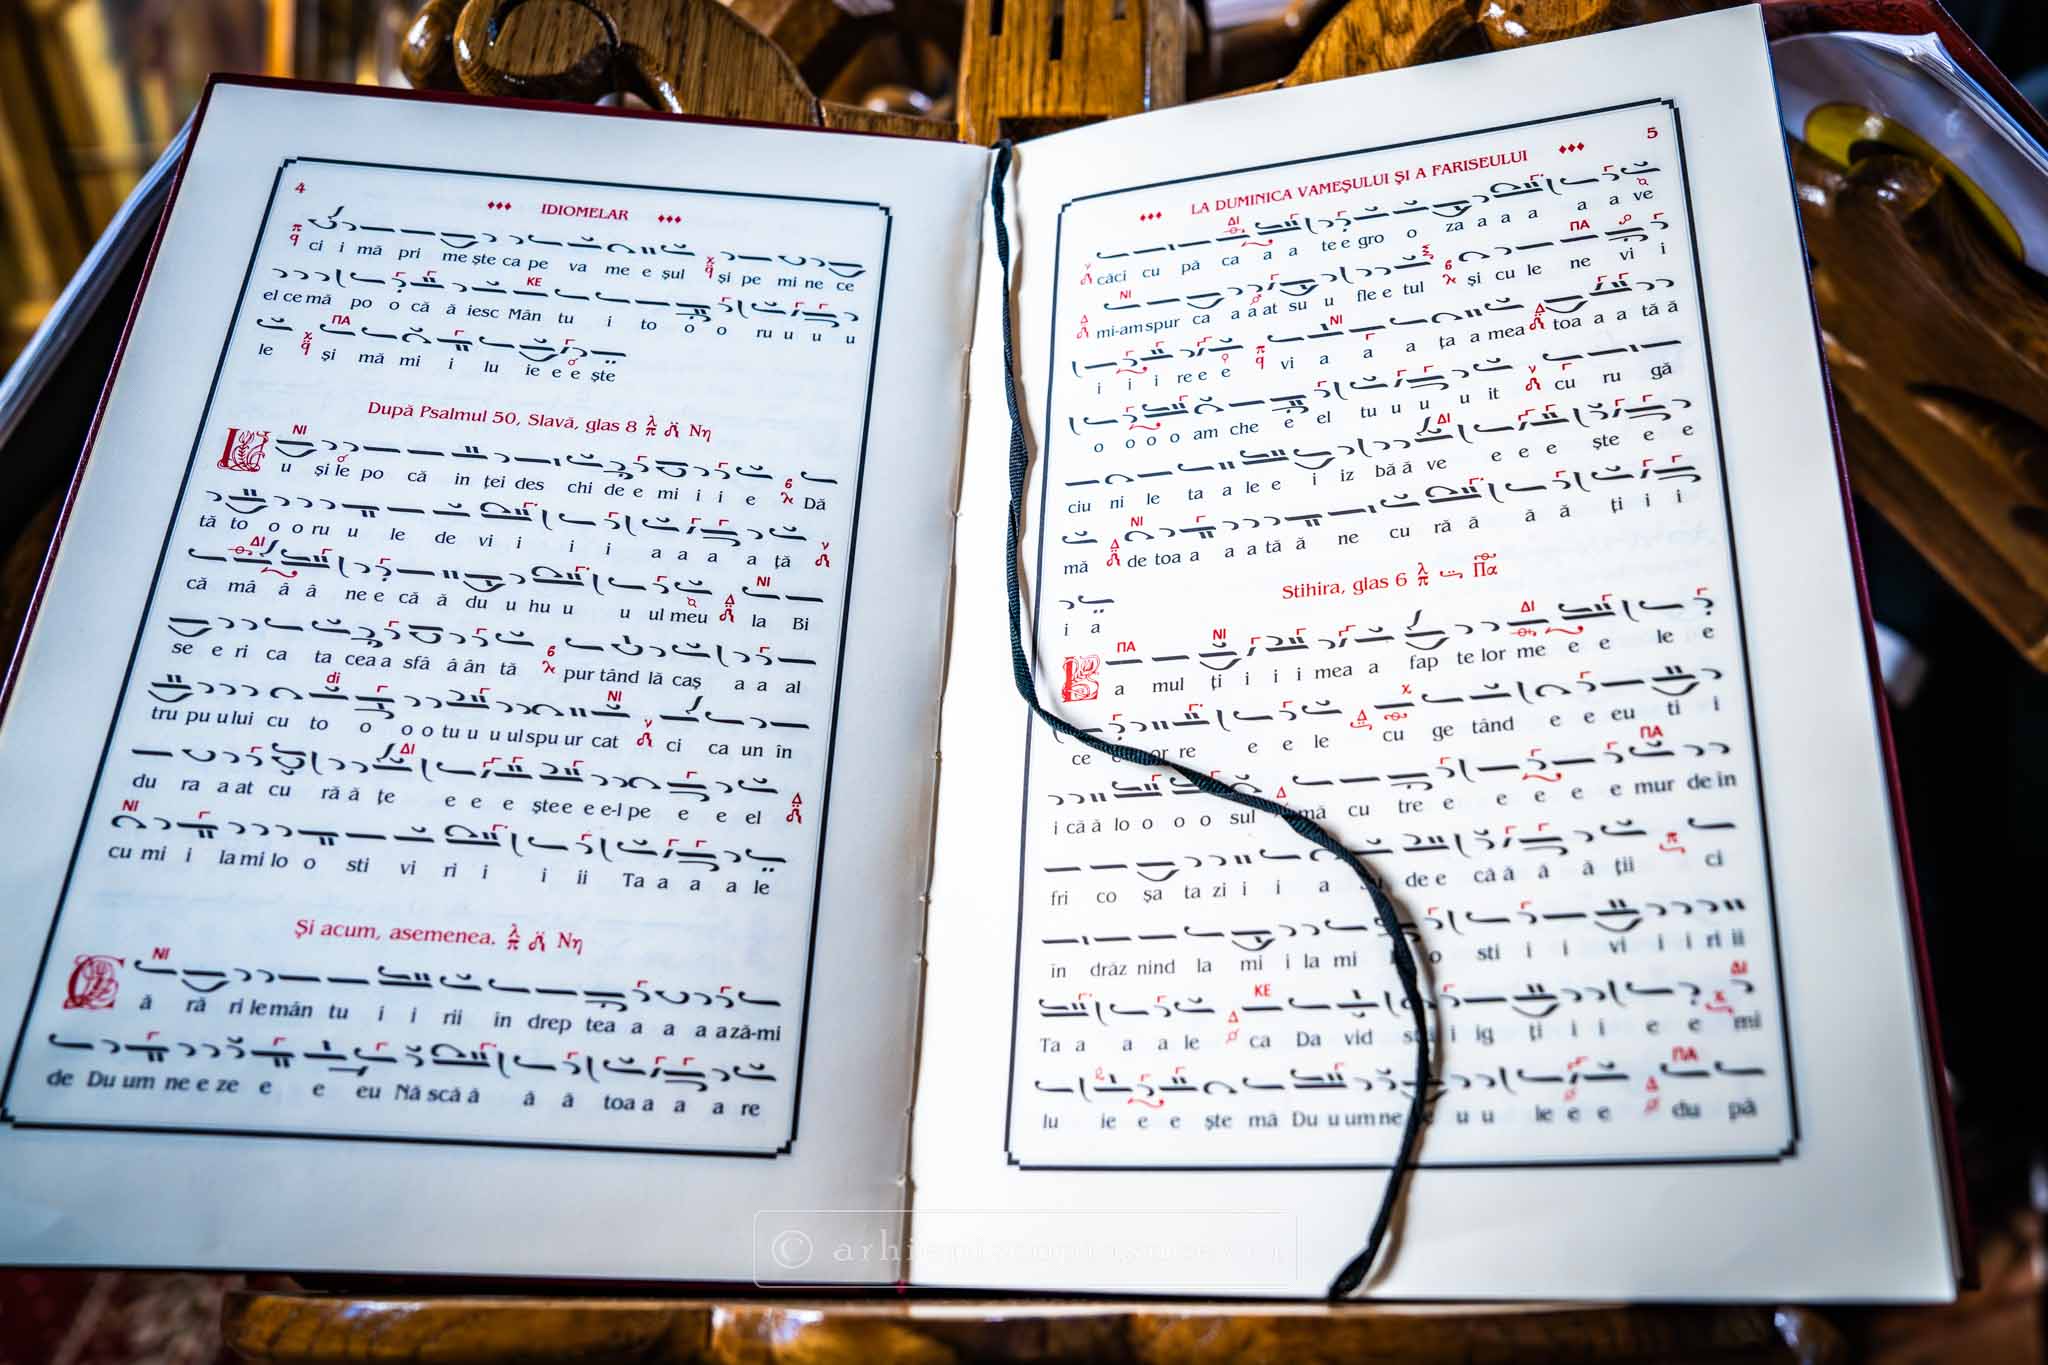 4
IDIOMELAR
ci i mă pri me ște ca pe va me e șul și pe mi ne ce
el ce mă po o că ă iesc Mân tu i to o o ru u u u
le și mă mi i lu ie e e ște
După Psalmul 50, Slavă, glas 8 Νη
NI
u și le po că in ței des chi de e mi i i e Dă
tă to o o ru u le de vi i i i a a a a ță
că mâ â â ne e că ă du u hu u u ul meu la Bi
se e ri ca ta cea a sfâ â ân tă pur tând lă caș a a al
tru pu u lui cu to o o o tu u u ul spu ur cat ci ca un în
du ra a at cu ră ă țe e e e ște e e e-l pe e e el
cu mi i la mi lo o sti vi ri i i ii Ta a a a le
Și acum, asemenea. Νη
NI
ă ră ri le mân tu i i rii in drep tea a a a ază-mi
de Du um ne e ze e e eu Nă scă ă â â toa a a a re
LA DUMINICA VAMEȘULUI ȘI A FARISEULUI
5
căci cu pă ca a a te e gro o za a a a a a ve
mi-am spur ca a a at su u fle e tul și cu le ne vi i
i i i re e e vi a a a ța a mea toa a a tă ă
o o o o am che e el tu u u u it cu ru gă
ciu ni le ta a le e i iz bă ă ve e e e ște e e
mă de toa a a a tă ă ne cu ră ă ă ă ți i i
i a
Stihira, glas 6 Πα
ΠΑ NI ΔΙ
a mul ți i i i mea a fap te lor me e e le e
ce lor re e e e le cu ge tând e e eu ti i
i că ă lo o o o sul mă cu tre e e e e e mur de in
fri co șa ta zi i i a de e că ă ă ă ții ci
în drăz nind la mi i la mi o sti i i vi i i ri ii
Ta a a a le ca Da vid i ig ți i i e e mi
lu ie e e ște mă Du u um ne u u le e e du pă